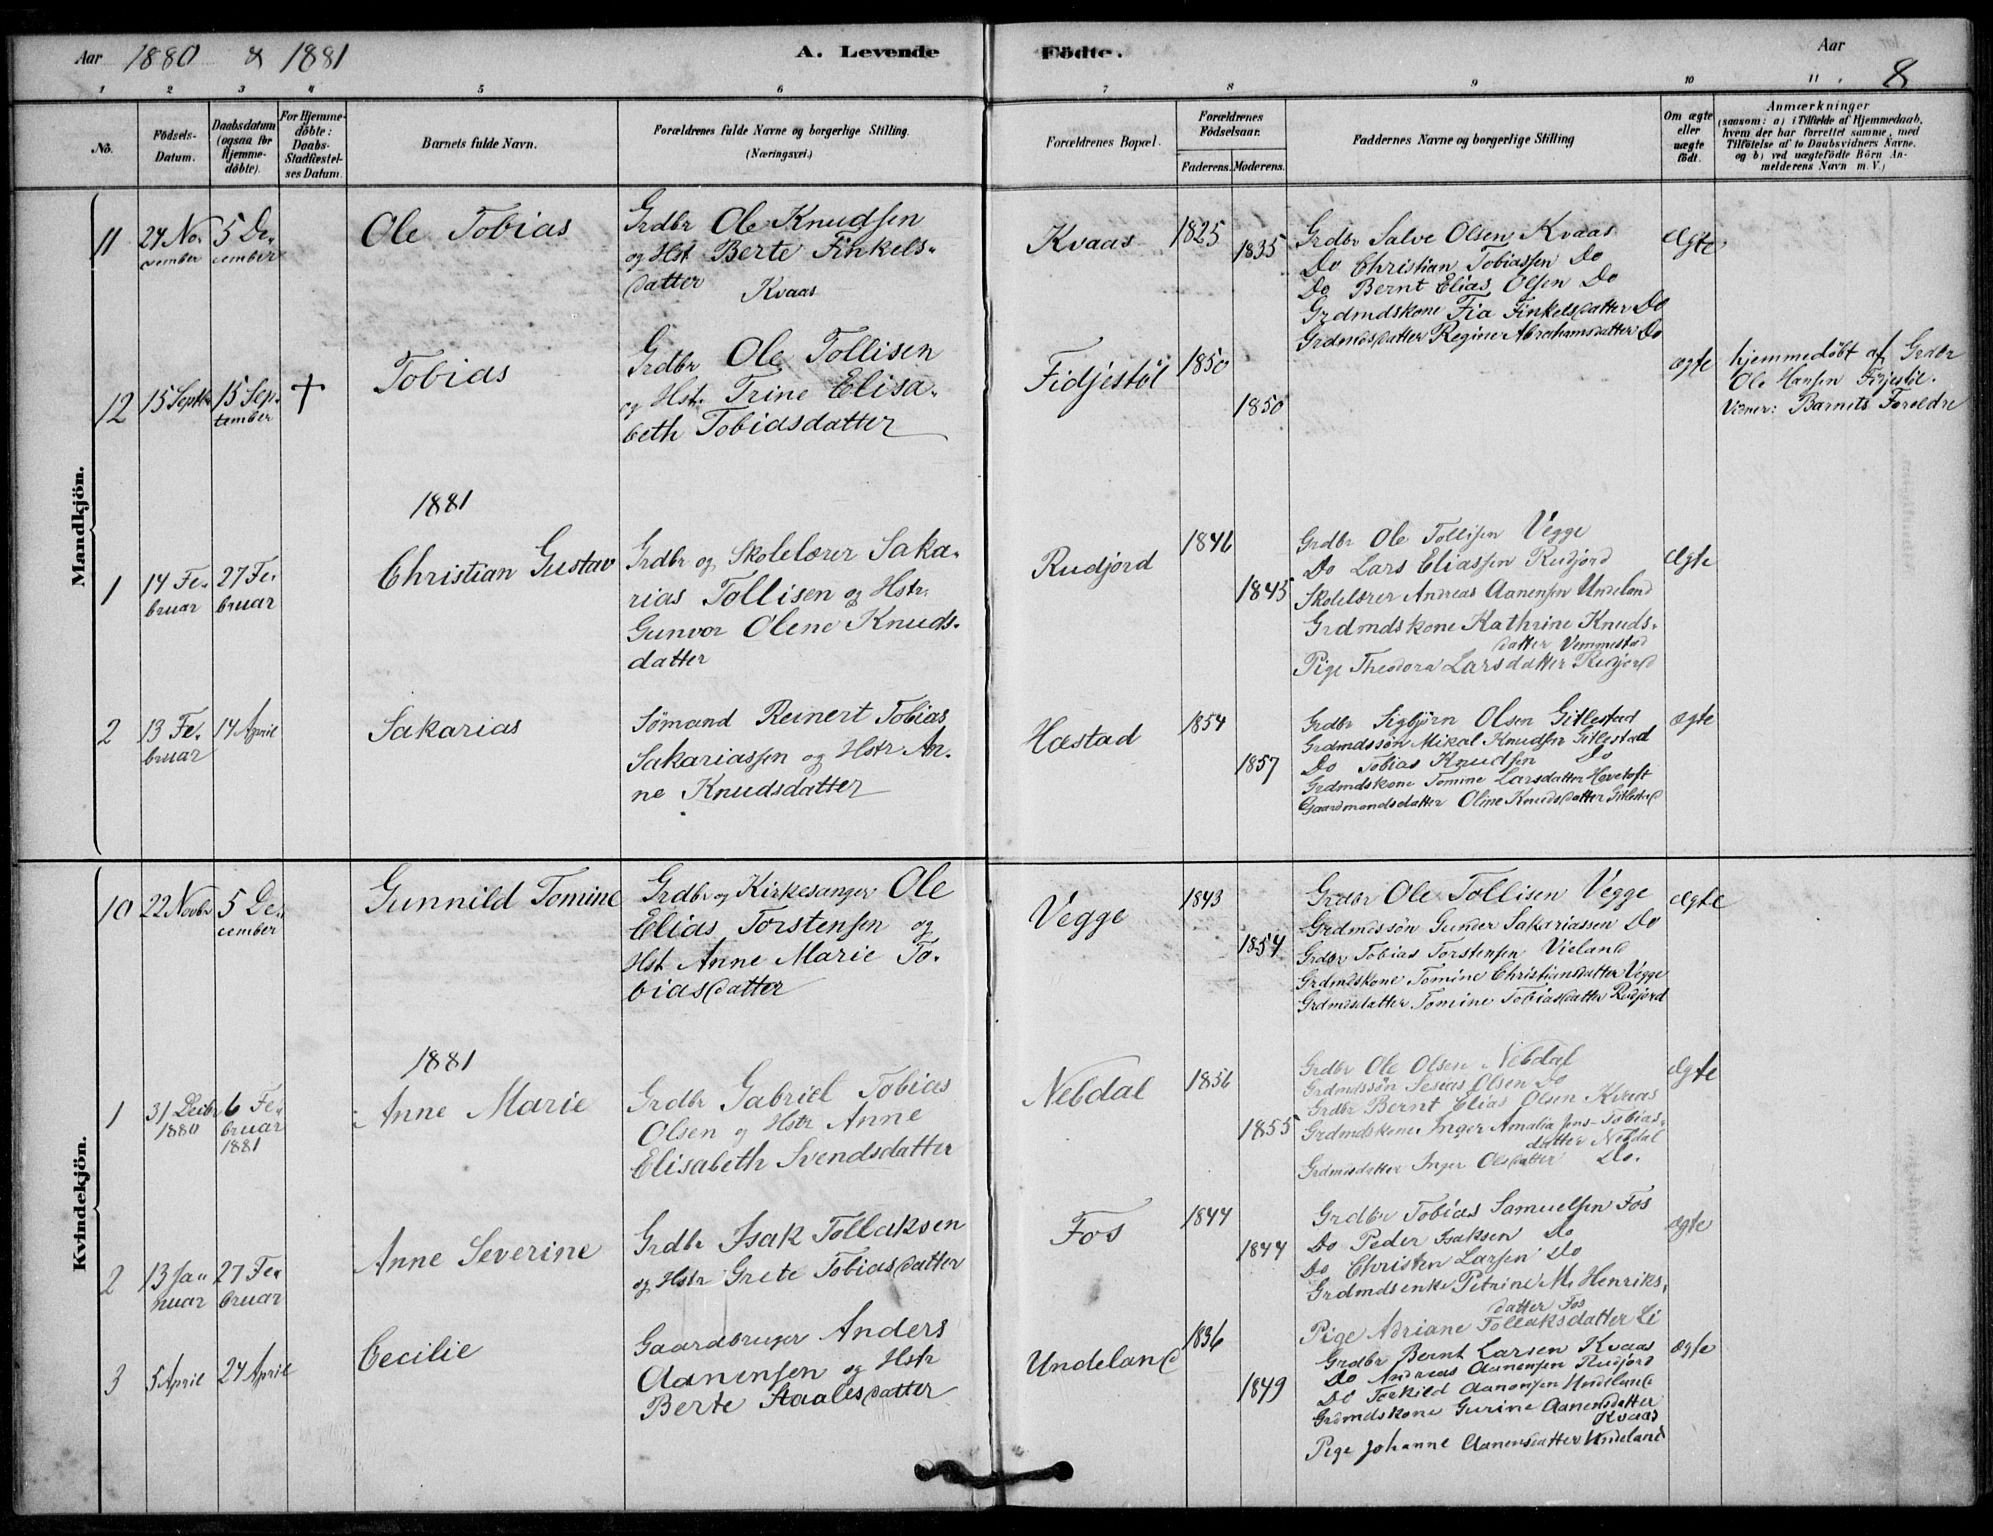 Aar 1880 & 1881 A. Levende Födte. Aar 8
1 2 3 4 5 6 7 8 9 10 11
No.
Födsels-
Datum.
Daabsdatum
(ogsaa for
Hjemme-
döbte).
For Hjemme-
döbte:
Daabs-
Stadfæstel-
ses Datum.
Barnets fulde Navn.
Forældrenes fulde Navne og borgerlige Stilling.
(Næringsvei.)
Forældrenes Bopæl.
Forældrenes
Födselsaar.
Faderens. Moderens.
Faddernes Navne og borgerlige Stilling
Om ægte
eller
uægte
födt.
Anmærkninger
(saasom: a) i Tilfælde af Hjemmedaab,
hvem der har forrettet samme, med
Tilföielse af to Daabsvidners Navne,
og b) ved uægtefödte Börn An-
melderens Navn m. V.)
Mandkjön.
11
24 No-
vember
5 De-
cember
Ole Tobias
Grdbr Ole Knudsen
og Hst Berte Finkels-
datter Kvaas
Kvaas
1825
1835
Grdbr Salve Olsen Kvaas
Do Christian Tobiassen Do
Do Bernt Elias Olsen Do
Grdmdskone Fia Finkelsdatter Do
Grdmdsdatter Regine Abrahamsdatter Do
Ægte
12
15 Septbr
15 Sep-
tember
+
Tobias
Grdbr Ole Tollisen
og Hstr. Trine Elisa-
beth Tobiasdatter
Fidjestøl
1850
1850
ægte
hjemmedøbt af Grdbr
Ole Hansen Fijestøl.
Vidner: Barnets Foreldre
1881
1
14 Fe-
bruar
27 Fe-
bruar
Christian Gustav
Grdbr og Skolelærer Saka-
rias Tollisen og Hstr.
Gunvor Olene Knuds-
datter
Rudjord
1846
1845
Grdbr Ole Tollisen Vegge
Do Lars Eliassen Rudjord
Skolelærer Andreas Aanensen Undeland
Grdmdskone Kathrine Knuds-
datter Vemmestad
Pige Theodora Larsdatter Rudjord
Ægte
2
13 Fe-
bruar
14 April
Sakarias
Sømand Reinert Tobias
Sakariassen og Hstr An-
ne Knudsdatter
Hæstad
1854
1857
Grdbr Sigbjørn Olsen Gitlestad
Grdmdssøn Mikal Knudsen Gitlestad
Do Tobias Knudsen Do
Grdmdskone Tomine Larsdatter Hovetoft
Gaardmandsdatter Oline Knudsdatter Gitlestad
ægte
Kvindekjön.
10
22 Novbr
5 De-
cember
Gunnild Tomine
Grdbr og Kirkesanger Ole
Elias Torstensen og
Hst Anne Marie To-
biasdatter
Vegge
1843
1854
Grdbr Ole Tollisen Vegge
Grdmdssøn Gunder Sakariassen Do
Grdbr Tobias Torstensen Vieland
Grdmdskone Tomine Christiansdatter Vegge
Grdmdsdatter Tomine Tobiasdatter Rudjord
Ægte
1881
1
31 Decbr
1880
6 Fe-
bruar
1881
Anne Marie
Grdbr Gabriel Tobias
Olsen og Hstr Anne
Elisabeth Svendsdatter
Nebdal
1856
1855
Grdbr Ole Olsen Nebdal
Grdmdssøn Olsen Do
Grdbr Bernt Elias Olsen Kvaas
Grdmdskone Inger Amalia Tobias-
datter Nebdal
Grdmdsdatter Inger Olsdatter Do.
Ægte
2
13 Ja-
nuar
27 Fe-
bruar
Anne Severine
Grdbr Isak Tollaksen
og Hstr Grete Tobiasdatter
Fos
1844
1844
Grdbr Tobias Samuelsen Fos
Do Peder Isaksen Do
Do Christen Larsen Do
Grdmdsenke Petrine M. Henriks-
datter Fos
Pige Adriane Tollaksdatter Li
ægte
3
5 April
24 April
Cecilie
Gaardbruger Anders
Aanensen og Hstr
Berte Staalesdatter
Undeland
1836
1849
Grdbr Bernt Larsen Kvaas
Do Andreas Aanensen Rudjord
Do Torkild Aanensen Undeland
Grdmdskone Gurine Aanensdatter
Kvaas
Pige Johanne Aanensdatter Undeland
ægte